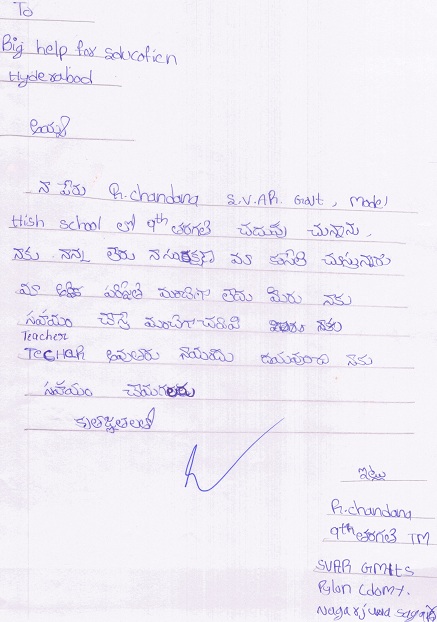 To
Big help for Education
Hyderabad
అయ్యా
నా పేరు R.chandana S.V.AR. Govt, Model
High school లో 9th తరగతి చదువు చున్నాను.
నాకు నాన్న లేరు నా సంరక్షణ మా చూస్తున్నారు
మా ఆర్థిక పరిస్థితి మంచిగా లేదు మీరు నాకు
సహయం చేస్తే మంచిగా చదివి నాకు
Teacher
TeCHAR దయవుంచి నాకు
సహయం చేయగలరు
కృతజ్ఞతలతో
ఇట్లు
R.chandana
9th తరగతి TM
SVAR GMHS
Pylon
Nagarjuna Sagar